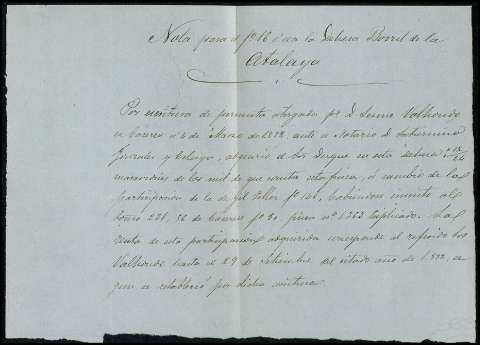 Nota para el fº 16 ó sea la Dehesa Borril de la
Atalaya
Por escritura de permuta otorgada pr D. Valhondo
en Cáceres a 6 de Marzo de 1878 ante el Notario D. Saturnino
González y Celaya, adquirió el Sr. Duque en esta dehesa
maravedíes de los mil de que consta esta finca, a cambio de las
participaciones de la de Gil Tellez fº 120, habiéndose inscrito al
tomo 226, 52 de Cáceres fº 90, finca nº 1.363 triplicado. La
renta de esta participación adquirida corresponde al referido Sor
Valhondo hasta el 29 de Setiembre del citado año de 1.878, se-
gun se estableció por dicha escritura.